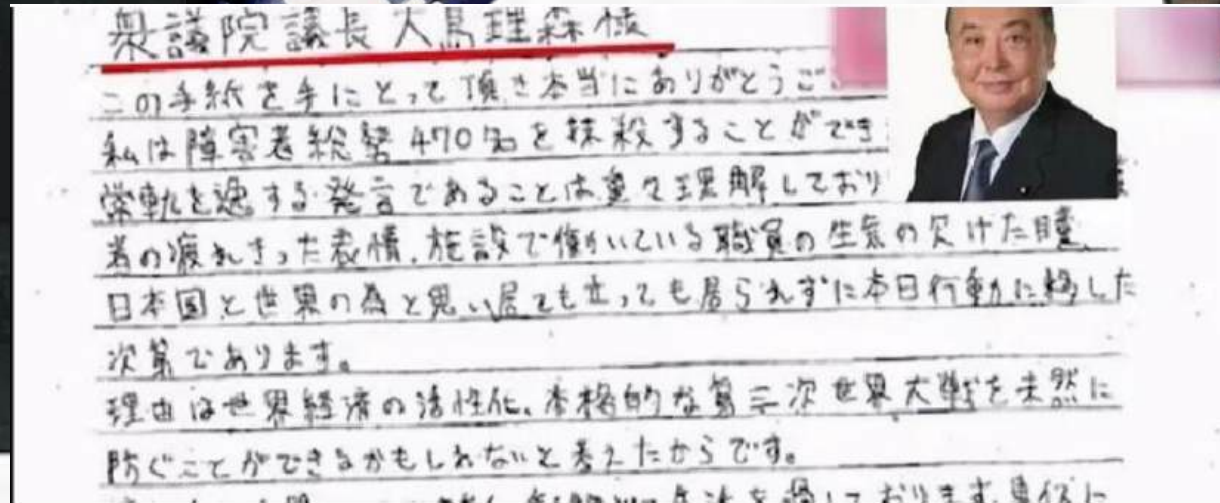 衆議院議長大島理森様
この手紙を手にとって頂き本当にありがとうござ
私は障害者総勢470名を抹殺することができ
常軌を逸する発言であることは重々理解しており
者の疲れきった表情、施設で働いている職員の生気の欠けた瞳、
日本国と世界の為と思い居ても立っても居られずに本日行動に移した
次第であります。
理由は世界経済の活性化、本格的な第三次世界大戦を未然に
防ぐことができるかもしれないと考えたからです。